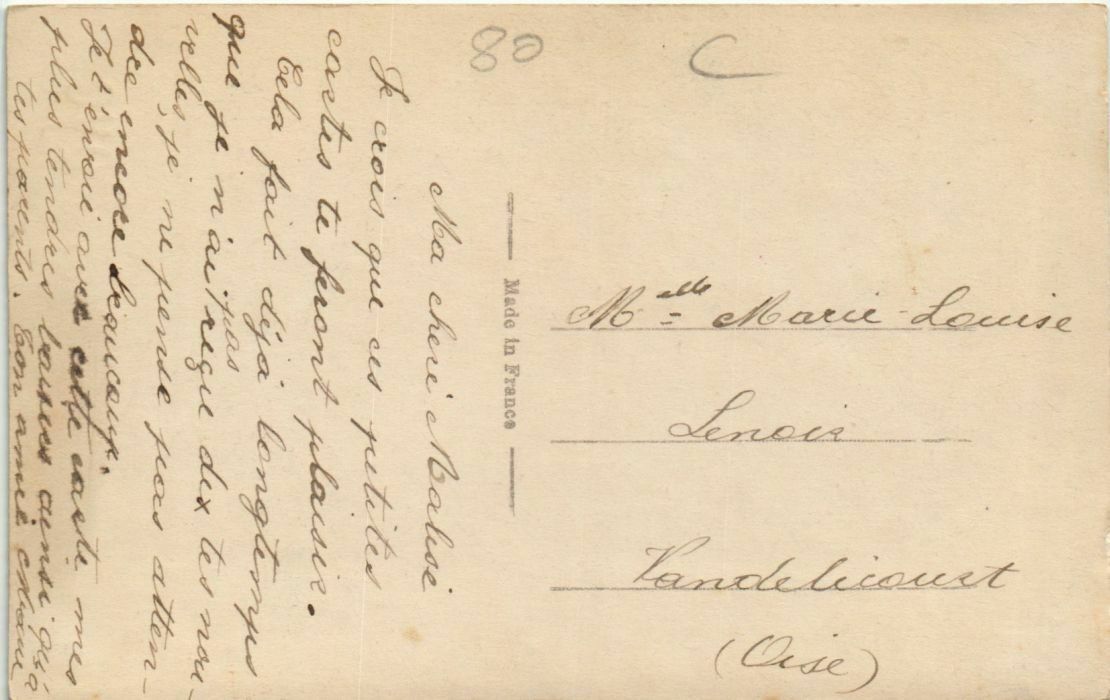 80
C
Ma cheri Malisé
Je crois que ces petites
cartes te feront plaisir.
Cela fait déjà longtemps
que je n'ai pas reçue dix tes nou-
velles, je ne pense pas atten-
dre encore beaucoup.
Je t'envoie avec cette carte mes
plus tendres baisers ainsi qu'à
tes parents. Ton amie
Made in France
Melle Marie-Louise
Lenoir
Vandelicourt
(Oise)